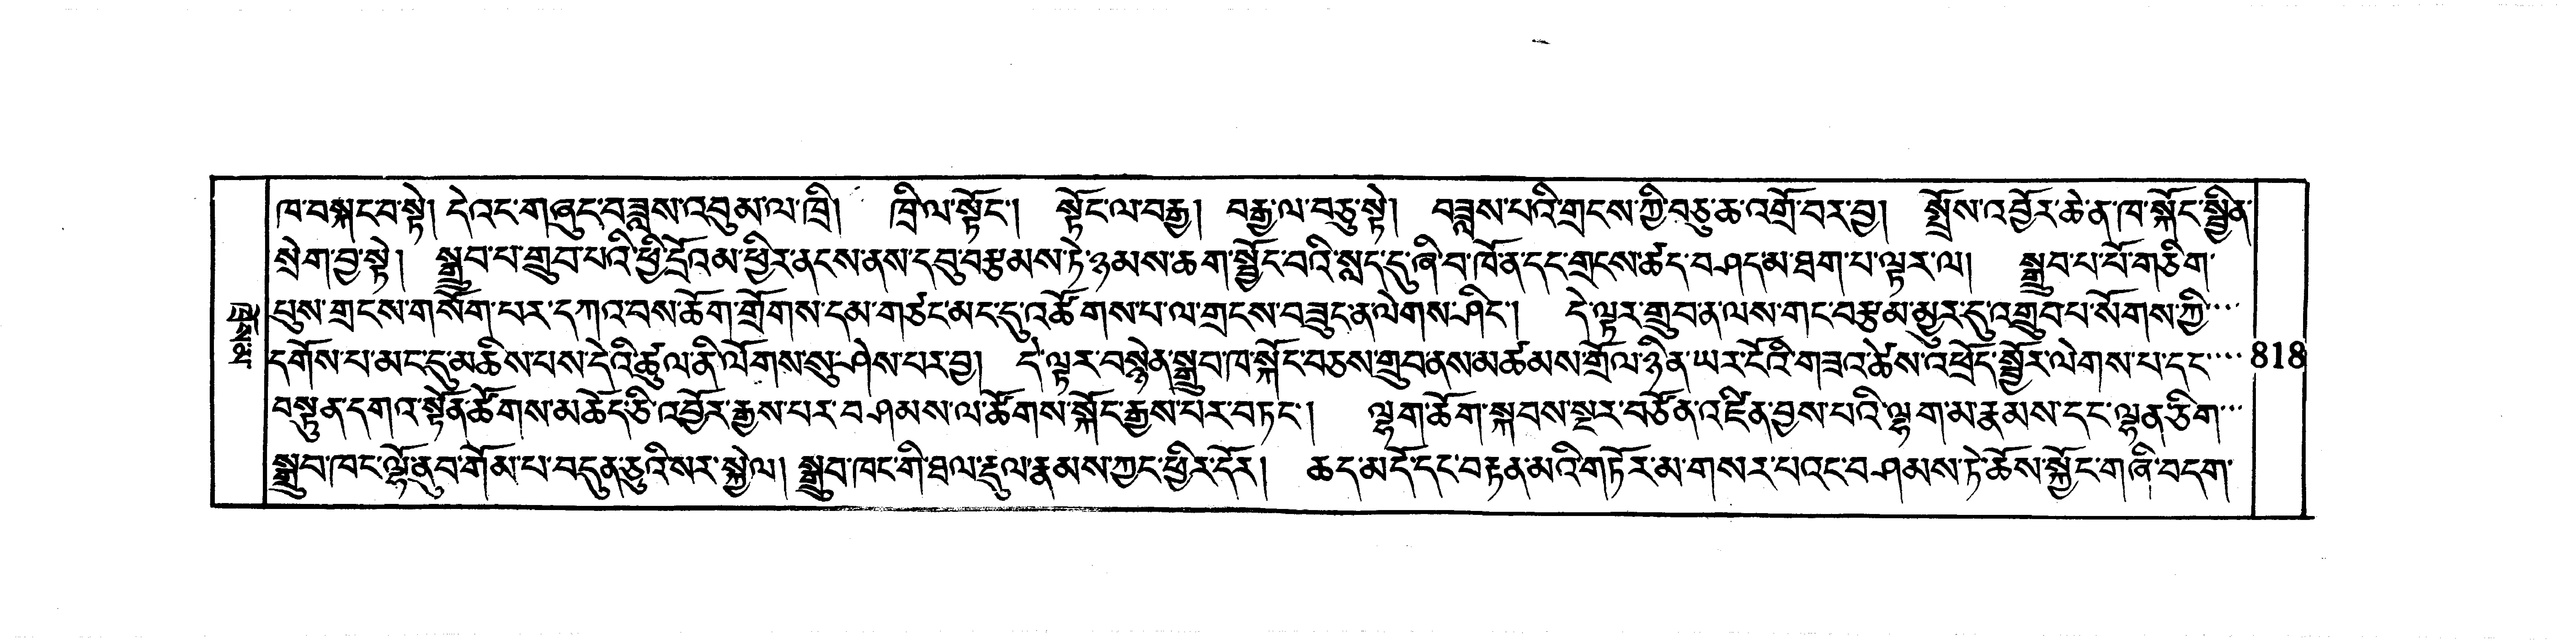 ཁ་བསྐང་བ་སྟེ། དེའང་གཞུང་བཟླས་འབུམ་ལ་ཁྲི། ཁྲི་ལ་སྟོང་། སྟོང་ལ་བརྒྱ། བརྒྱ་ལ་བཅུ་སྟེ། བཟླས་པའི་གྲངས་ཀྱི་བཅུ་ཆ་འགྲོ་བར་བྱ། སྤྲོས་འབྱོར་ཆེ་ན་ཁ་སྐོང་སྦྱིན་
སྲེག་བྱ་སྟེ། སྒྲུབ་པ་གྲུབ་པའི་ཕྱི་དྲོའམ་ཕྱིར་ནངས་ནས་དབུ་བརྩམས་ཏེ་ཉམས་ཆག་སྦྱོང་བའི་སླད་དུ་ཞི་བ་ཁོ་ན་དང་གྲངས་ཚད་བཤད་མ་ཐག་པ་ལྟར་ལ། སྒྲུབ་པ་པོ་གཅིག་
པུས་གྲངས་གསོག་པར་དཀའ་བས་ཆོག་གྲོགས་དམ་གཙང་མང་དུ་འཚོགས་པ་ལ་གྲངས་བཟུང་ན་ལེགས་ཤིང་། དེ་ལྟར་གྲུབ་ན་ལས་གང་བརྩམ་མྱུར་དུ་འགྲུབ་པ་སོགས་ཀྱི་
དགོས་པ་མང་དུ་མཆིས་པས་དེའི་ཚུལ་ནི་ལོགས་སུ་ཤེས་པར་བྱ། དེ་ལྟར་བསྙེན་སྒྲུབ་ཁ་སྐོང་བཅས་གྲུབ་ནས་མཚམས་གྲོལ་ཉིན་ཡར་ངོའི་གཟའ་ཚེས་འཕྲོད་སྦྱོར་ལེགས་པ་དང་ 818
བསྟུན་དགའ་སྟོན་ཚོགས་མཆོད་ཅི་འབྱོར་རྒྱས་པར་བཤམས་ལ་ཚོགས་སྐོང་རྒྱས་པར་བཏང་། ལྷག་ཆོག་སྐབས་སྔར་བཙོན་འཛིན་བྱས་པའི་ལྷག་མ་རྣམས་དང་ལྷན་ཅིག་
སྒྲུབ་ཁང་ལྷོ་ནུབ་གོམ་པ་བདུན་ཅུའི་སར་སྐྱེལ། སྒྲུབ་ཁང་གི་ཐལ་རྡུལ་རྣམས་ཀྱང་ཕྱིར་དོར། ཆད་མདོ་དང་བརྟན་མའི་གཏོར་མ་གསར་པའང་བཤམས་ཏེ་ཆོས་སྐྱོང་གཞི་བདག་